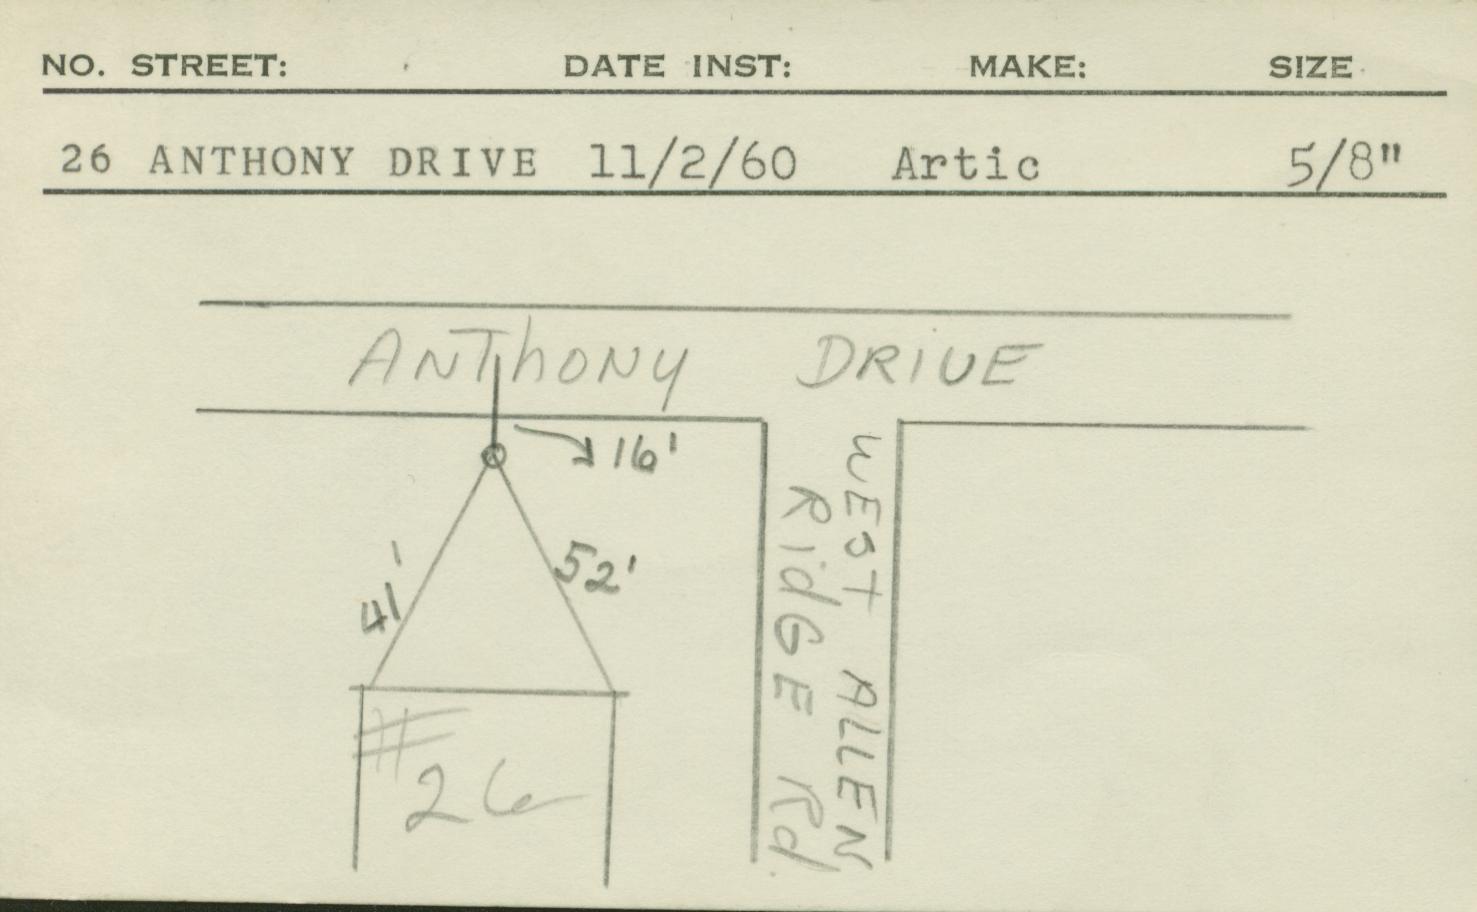 NO. STREET: DATE INST: MAKE: SIZE
26 ANTHONY DRIVE 11/2/60 Artic 5/8"
ANThONY DRIVE
16'
41'
52'
WEST ALLEN
RidGE Rd
#26